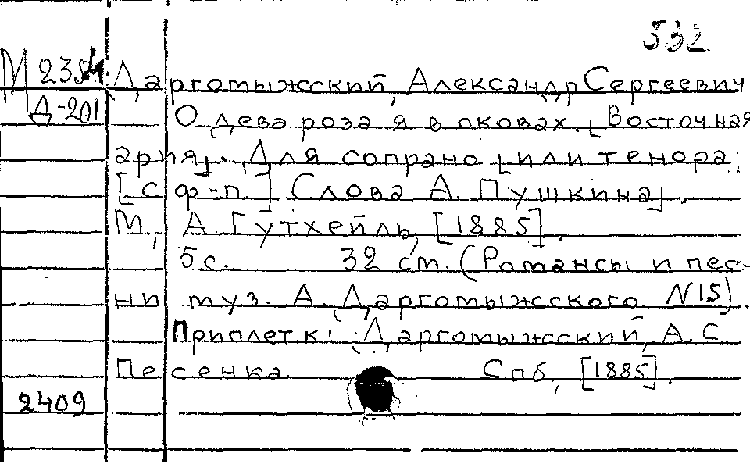 532
М 235ч Даргомыжский, Александр Сергеевич
Д-201 О дева роза я в оковах. [Восточная
ария]. Для сопрано [или тенора
[с ф-п.] Слова А. Пушкина].
М., А Гутхейль, [1885].
5 с. 32 см. (Романсы и пес-
ни муз. А. Даргомыжского N 15).
Приплетк: Даргомыжский, А. С
Песенка. Спб., [1885].
2409